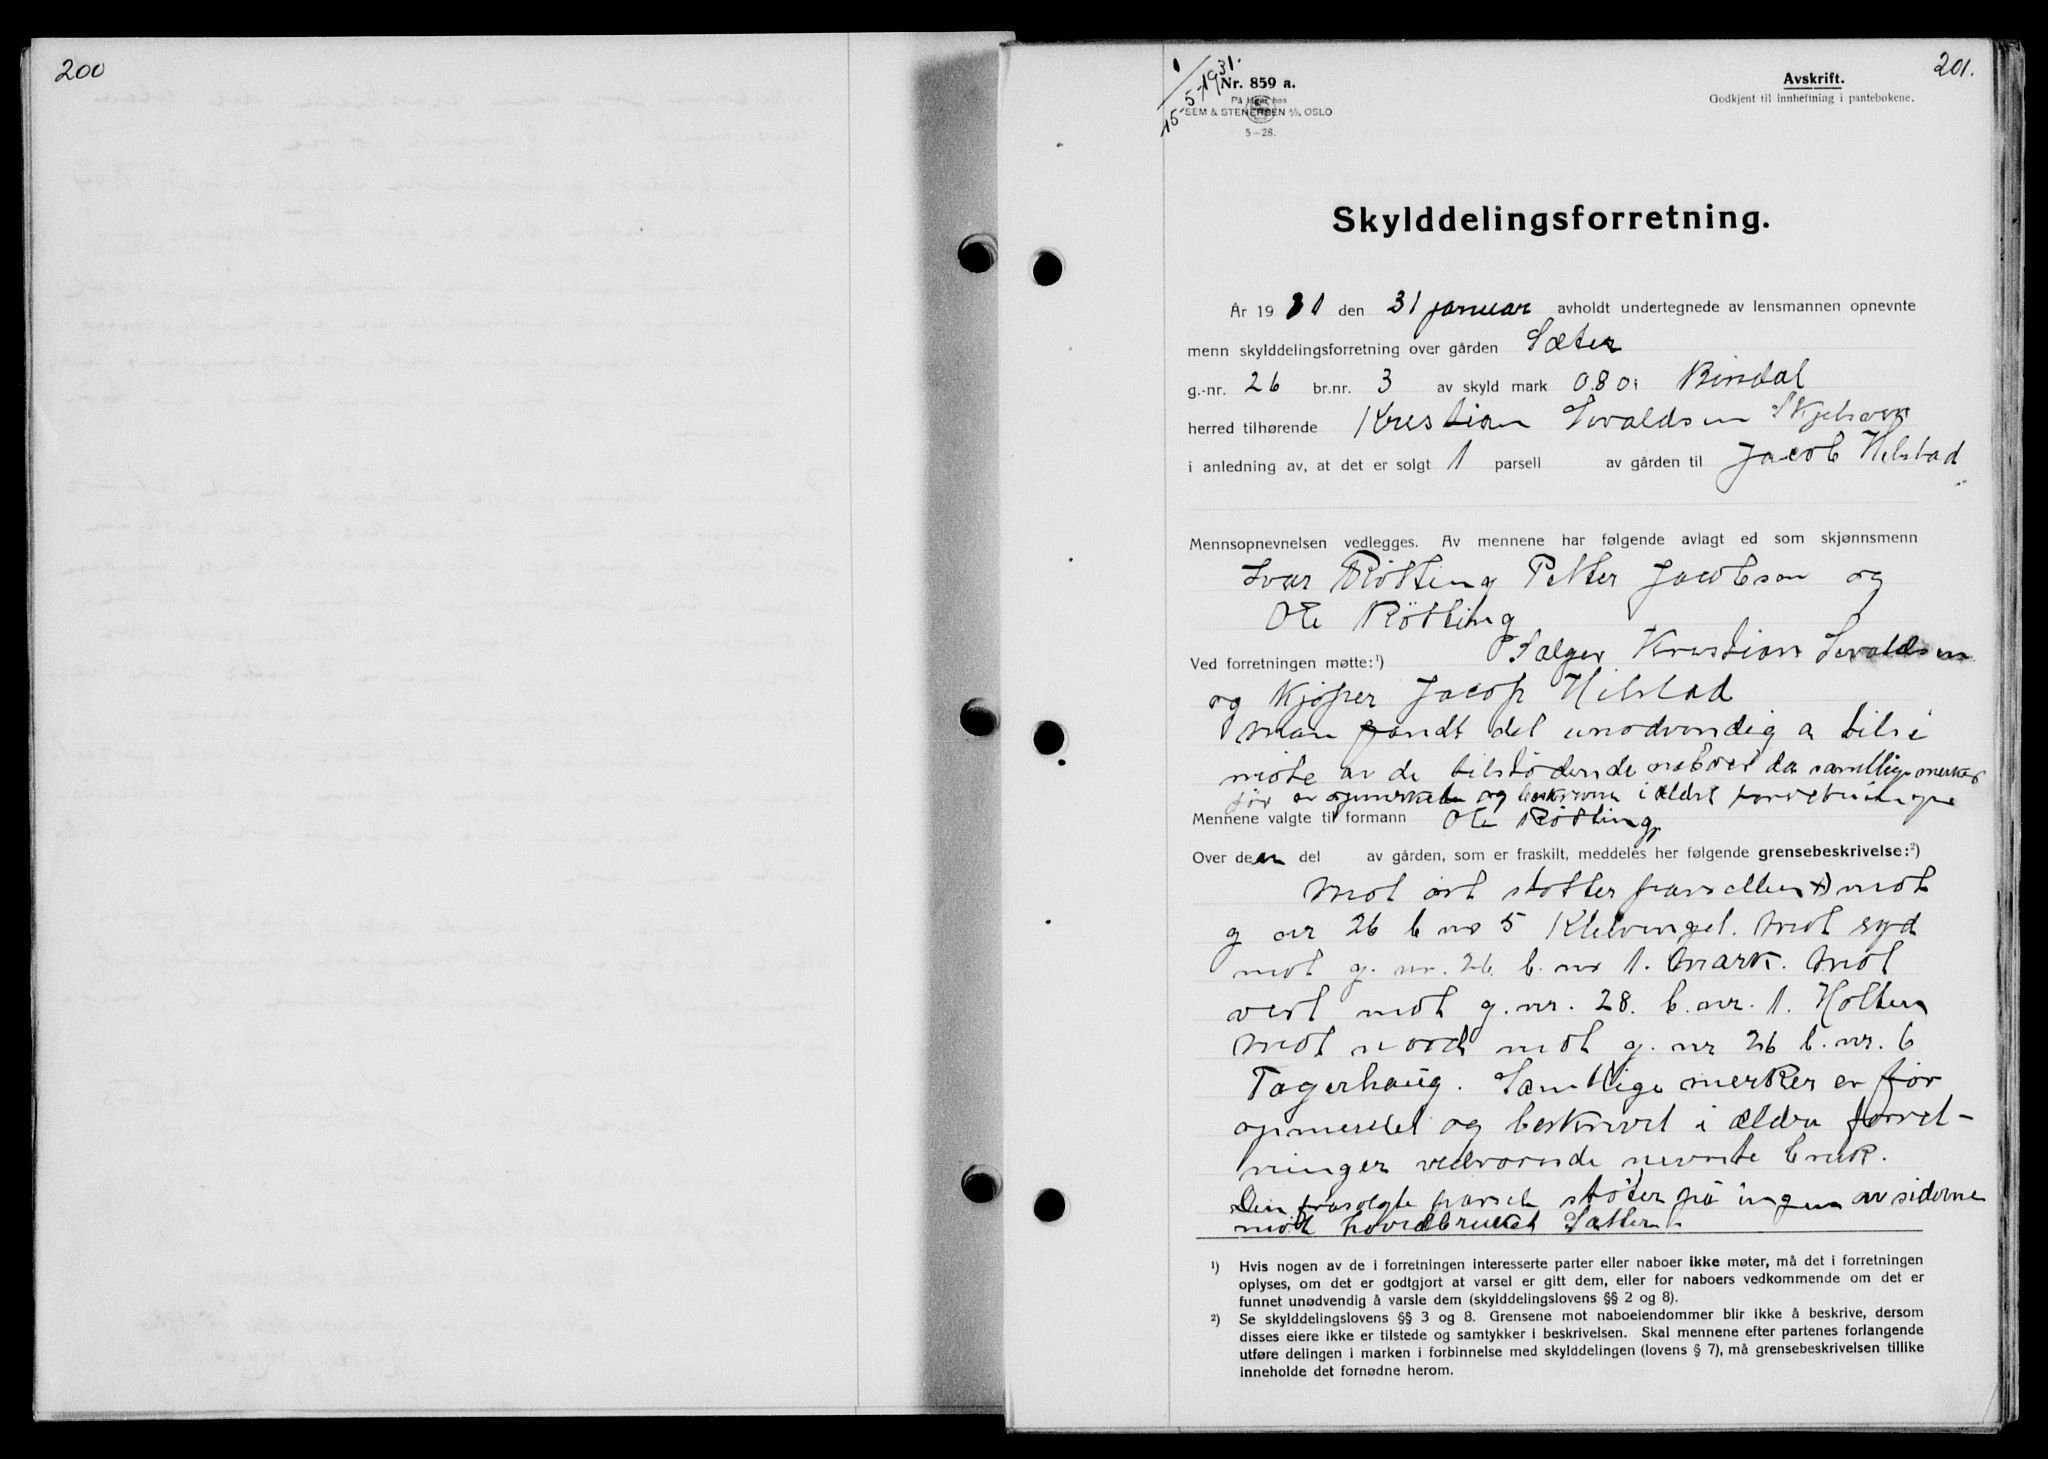 200
201.
1
15-5-1931.
Nr. 859 a.
På lager hos
SEM & STENERSEN A/S. OSLO
5—28.
Avskrift.
Godkjent til innheftning i pantebøkene.
Skylddelingsforretning.
År 1931 den 31 januar avholdt undertegnede av lensmannen opnevnte
menn skylddelingsforretning over gården Sæter
g.-nr. 26 br.nr. 3 av skyld mark 0.80 i Bindal
herred tilhørende Kristian Sivaldsen
i anledning av, at det er solgt 1 parsell av gården til Jacob Helstad
Mennsopnevnelsen vedlegges. Av mennene har følgende avlagt ed som skjønnsmenn
Ivar Røtting Petter Jacobsen og
Ole Røtting
Ved forretningen møtte:¹) Sælger Kristian Sivaldsen
og Kjøper Jacop Hilstad
man fandt det unødvendig a tilsi
møte av de tilstødende naboer da samtlige merker
før er opmerket og beskreven i ældre forretninger
Mennene valgte til formann Ole Røtting
Over den del av gården, som er fraskilt, meddeles her følgende grensebeskrivelse:²)
Mot øst støtter parsellen mot
g nr 26 b nr 5 Klebvinget. Mot syd
mot g. nr. 26 b. nr 1. mark. Mot
vest mot g. nr. 28. b. nr. 1. Holten
Mot nord mot g. nr 26 b. nr. 6
Tagerhaug. Samtlige merker er før
opmerket og beskrevet i ældre forret-
ninger vedrørende nevnte bruk.
Den frasolgte parsel støter på ingen av siderne
mot hovedbruket Sætter.
¹) Hvis nogen av de i forretningen interesserte parter eller naboer ikke møter, må det i forretningen
oplyses, om det er godtgjort at varsel er gitt dem, eller for naboers vedkommende om det er
funnet unødvendig å varsle dem (skylddelingslovens §§ 2 og 8).
²) Se skylddelingslovens §§ 3 og 8. Grensene mot naboeiendommer blir ikke å beskrive, dersom
disses eiere ikke er tilstede og samtykker i beskrivelsen. Skal mennene efter partenes forlangende
utføre delingen i marken i forbinnelse med skylddelingen (lovens § 7), må grensebeskrivelsen tillike
inneholde det fornødne herom.